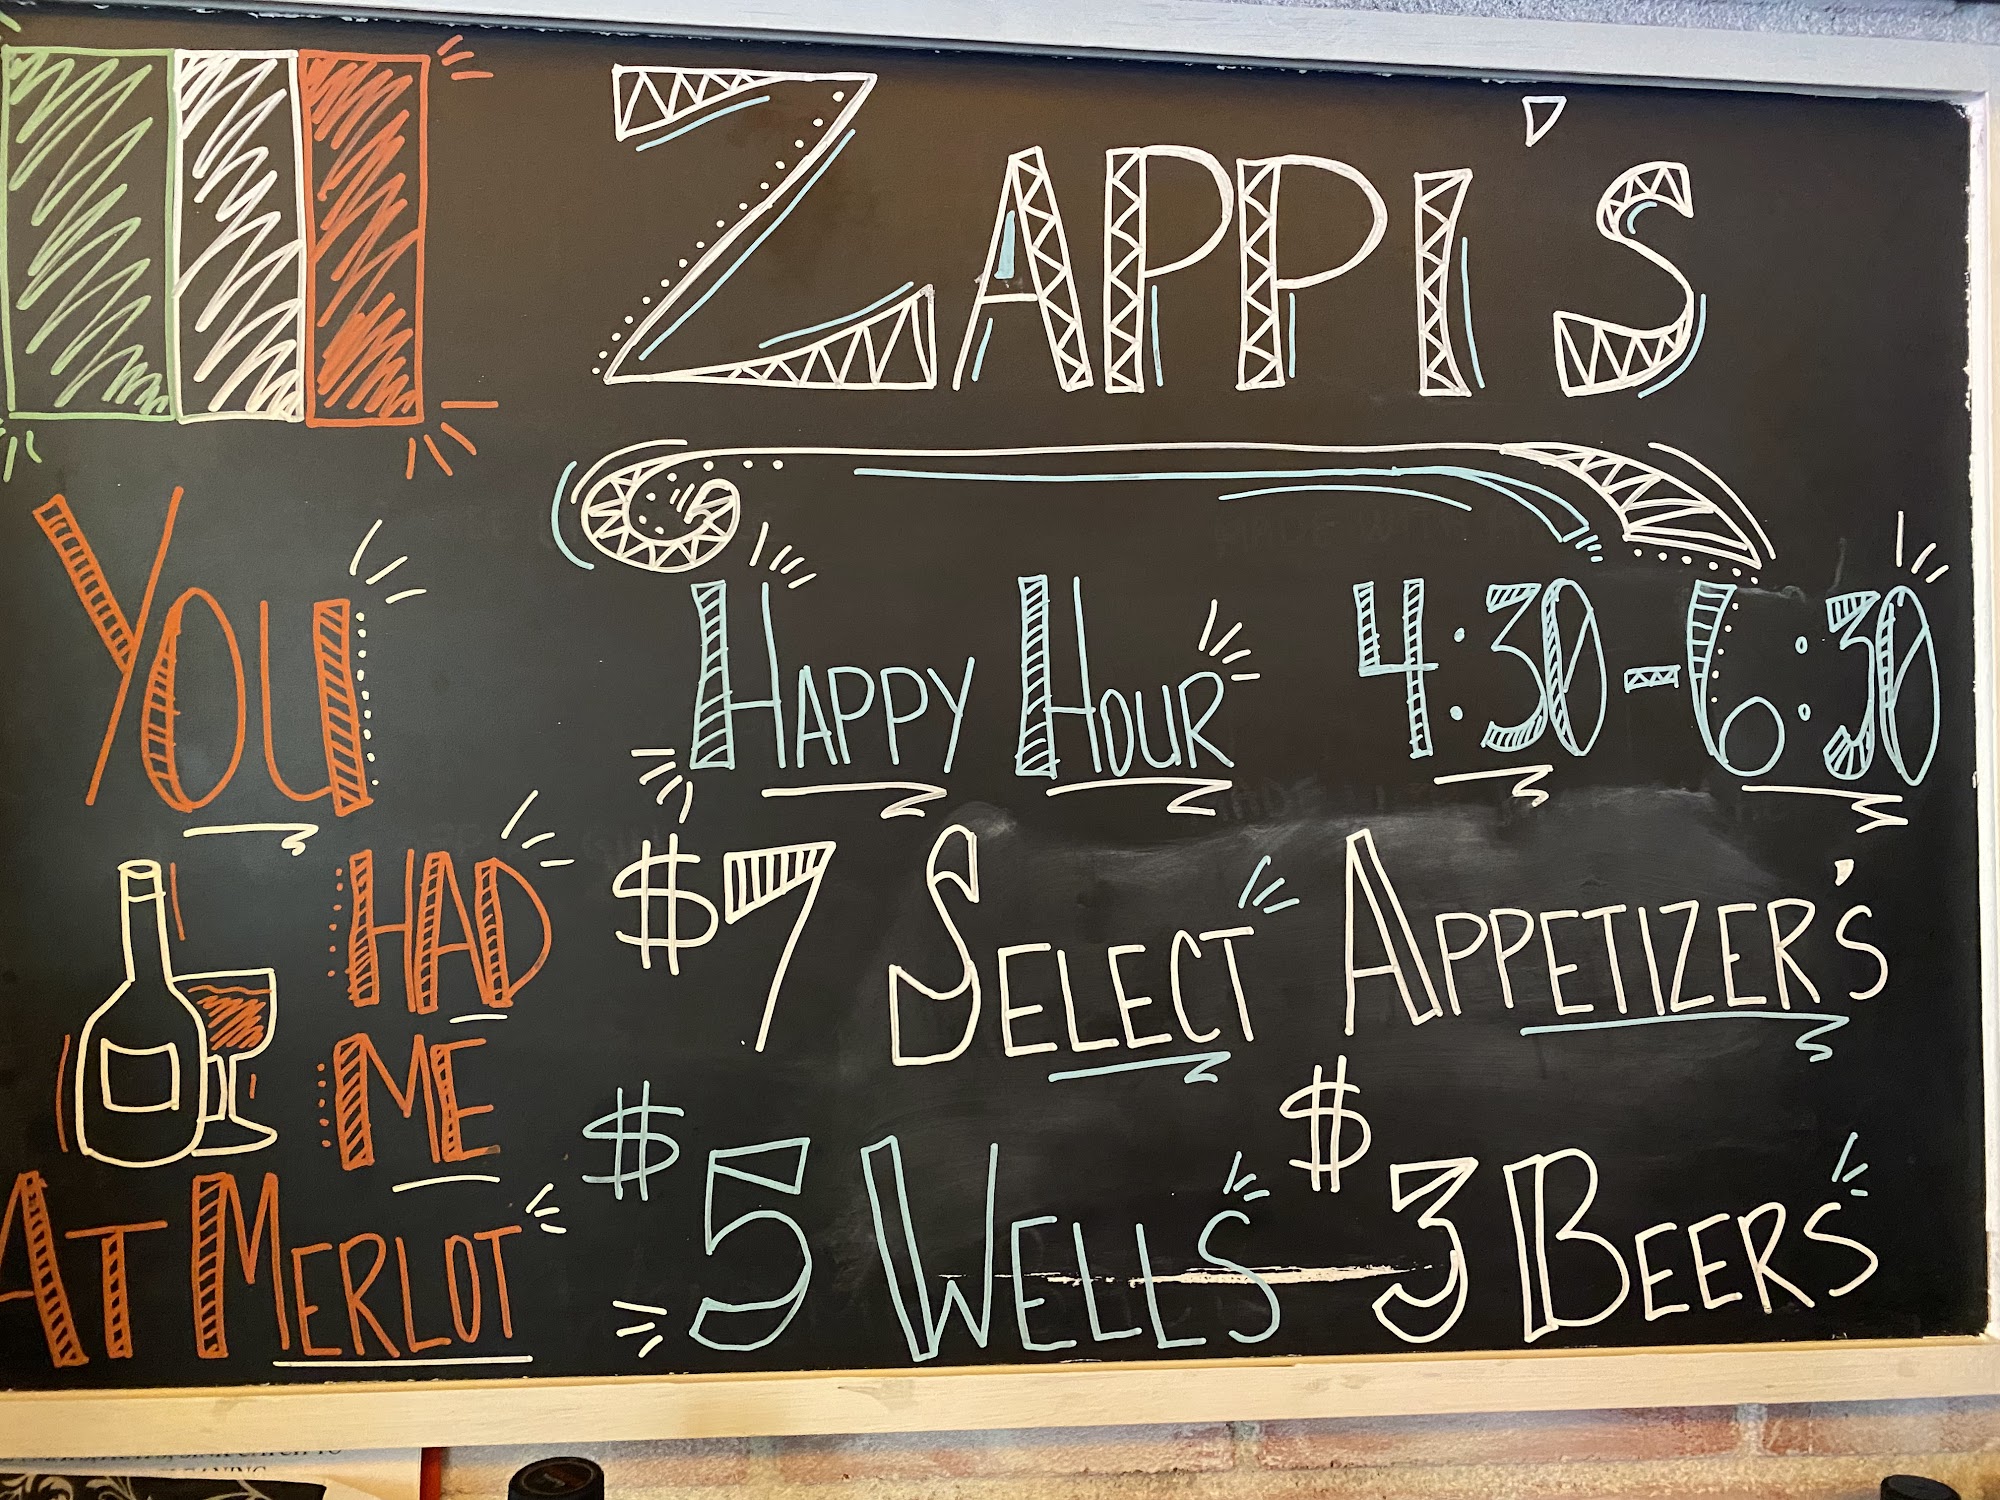 ZAPPI'S
HAPPY HOUR 4:30-6:30
$7 SELECT APPETIZER'S
$5 WELLS $3 BEERS
YOU
HAD
ME
AT MERLOT